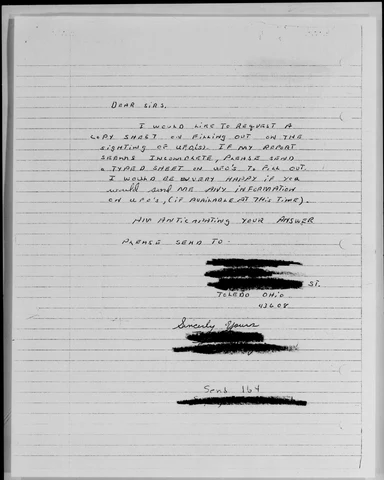 DEAR SIRS,
I WOULD LIKE TO REQUEST A
COPY SHEET ON FILLING OUT ON THE
SIGHTING OF UFO(S). IF MY REPORT
SEEMS INCOMPLETE, PLEASE SEND
A TYPED SHEET ON UFO'S TO FILL OUT.
I WOULD BE VERY HAPPY IF YOU
would send ME ANY INFORMATION
ON UFO'S, (IF AVAILABLE AT THIS TIME).
ANTICIPATING YOUR ANSWER
PLEASE SEND TO -
ST.
TOLEDO OHIO
43608
Sincerly Yours
164